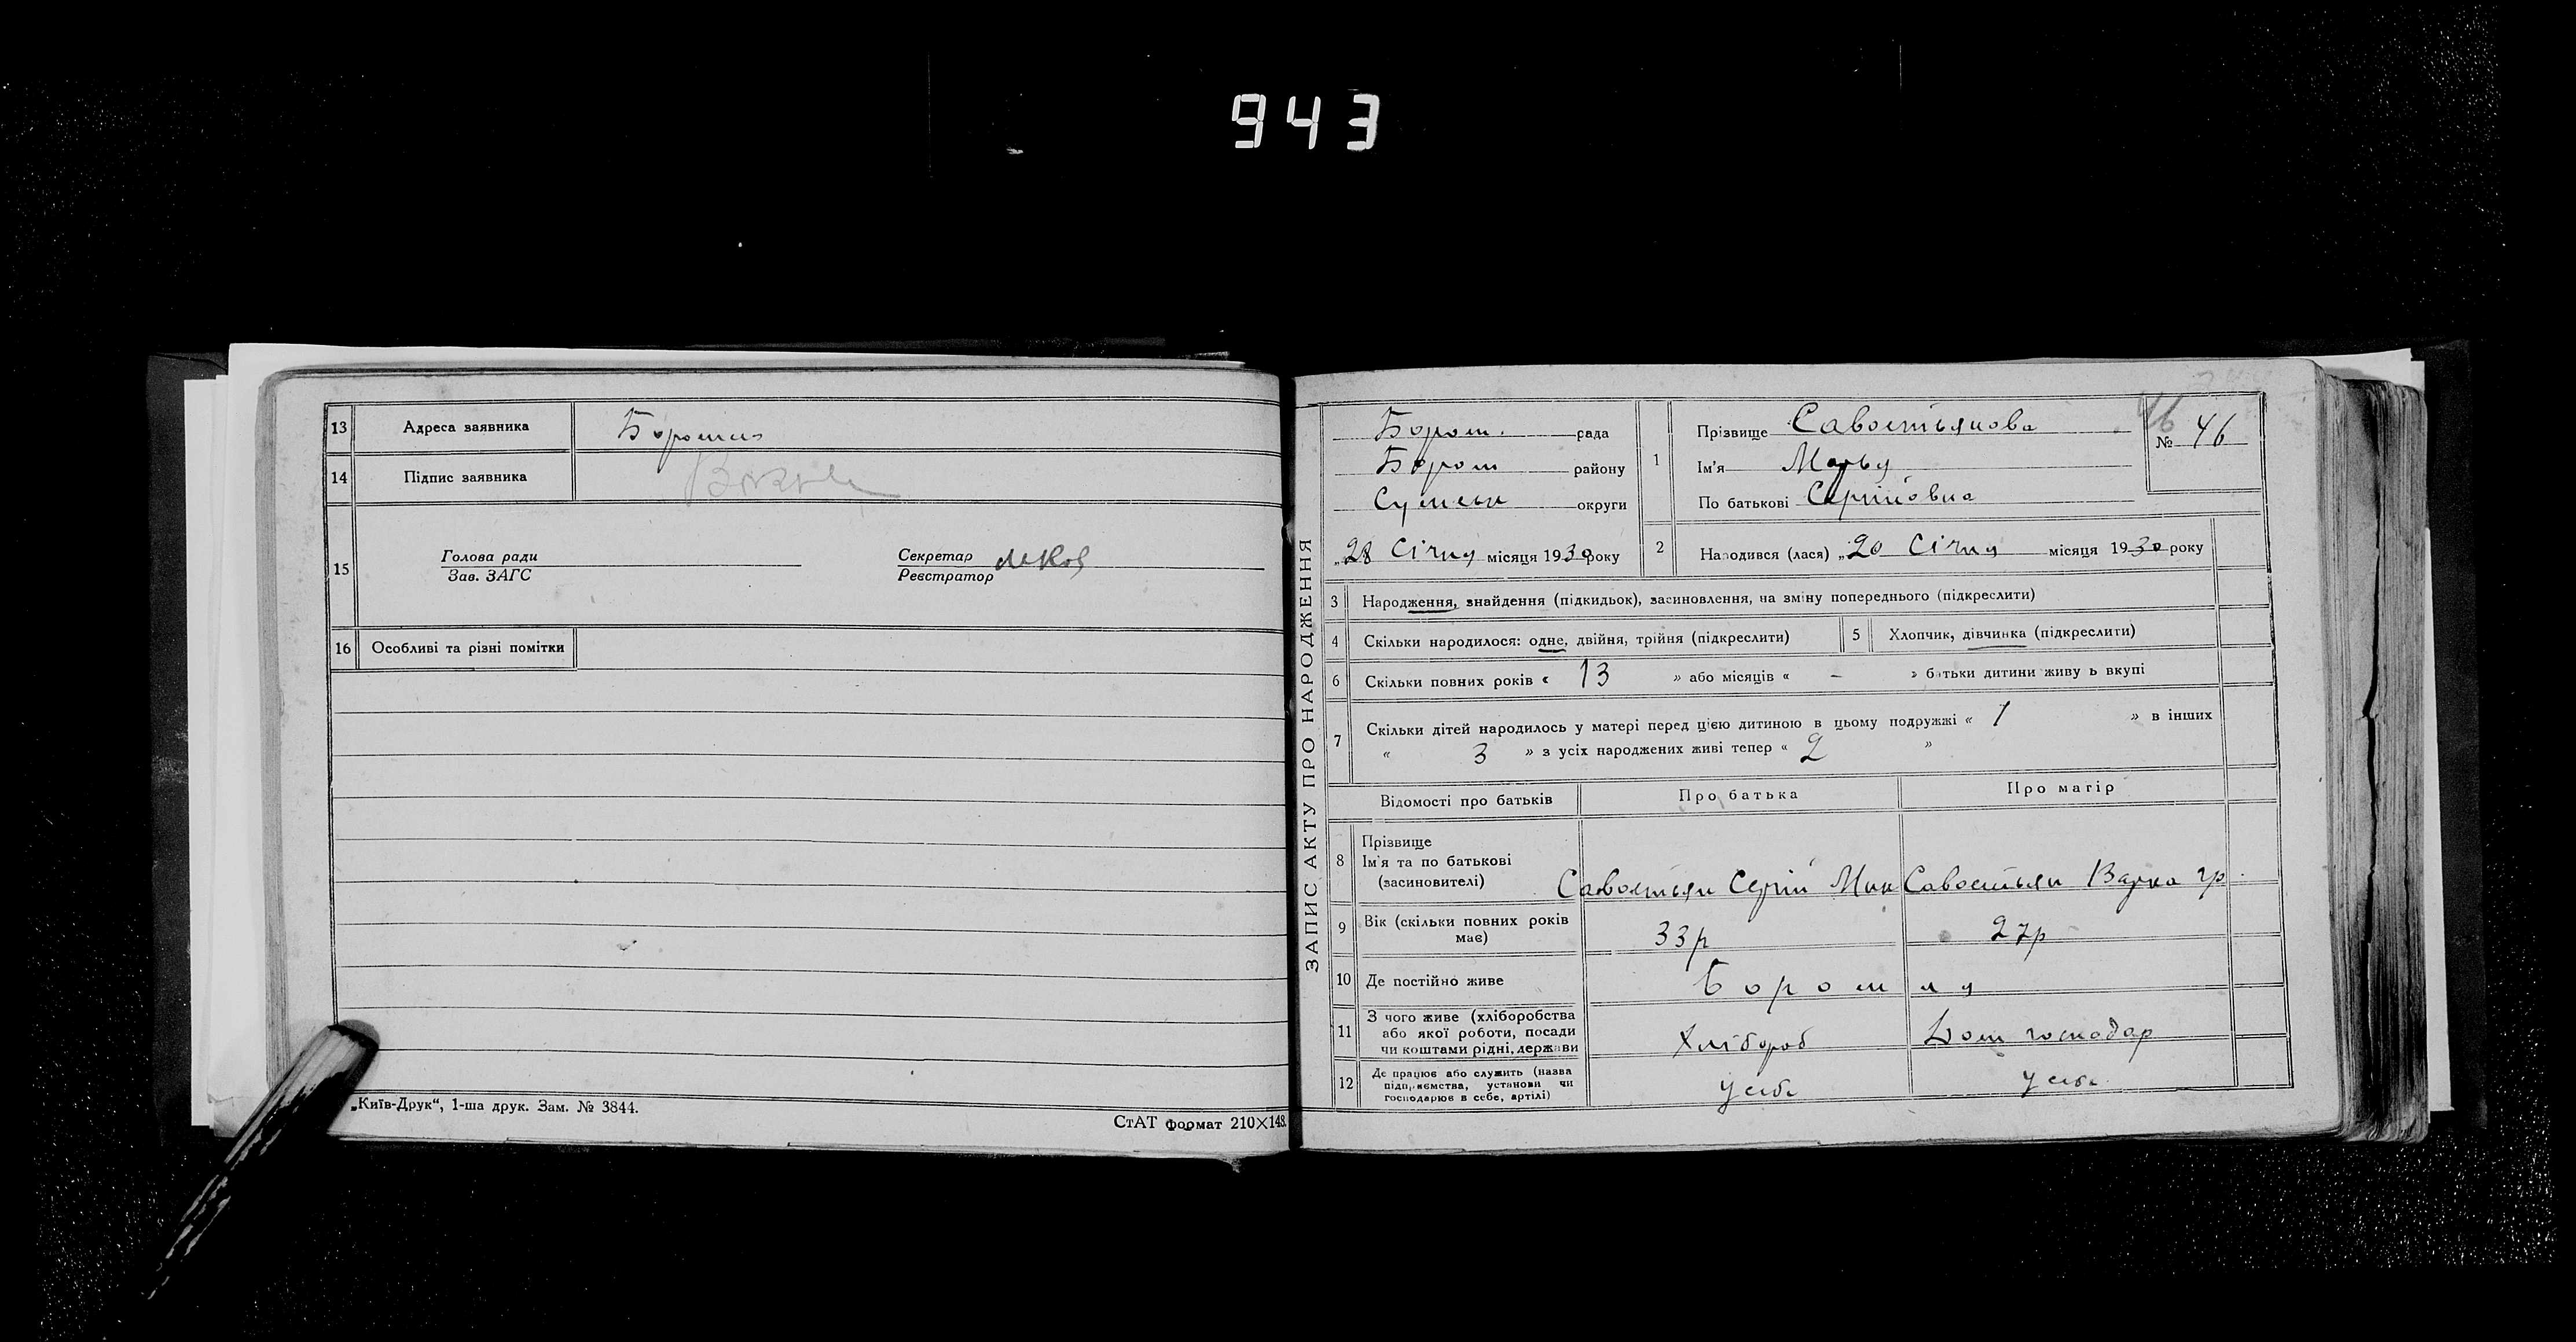 943
13 Адреса заявника Боромля
14 Підпис заявника
15 Голова ради Секретар
Зав. ЗАГС Реєстратор
16 Особливі та різні помітки
„Київ-Друк“, 1-ша друк. Зам. № 3844.
СтАТ формат 210×148.
ЗАПИС АКТУ ПРО НАРОДЖЕННЯ
Бором. рада
Бором району
Сумськ округи
„28 Січня місяця 1930 року
46
№ 46
1 Прізвище Савостьянова
Ім'я Марья
По батькові Сергіївна
2 Народився (лася) „20 Січня місяця 1930 року
3 Народження, знайдення (підкидьок), засиновлення, на зміну попереднього (підкреслити)
4 Скільки народилося: одне, двійня, трійня (підкреслити) 5 Хлопчик, дівчинка (підкреслити)
6 Скільки повних років « 13 » або місяців « – » батьки дитини живу ь вкупі
7 Скільки дітей народилось у матері перед цією дитиною в цьому подружжі « 1 » в інших
« 3 » з усіх народжених живі тепер « 2 »
Відомості про батьків Про батька Про матір
8 Прізвище
Ім'я та по батькові
(засиновителі) Савостьян Сергій Мик Савостьян Варка гр.
9 Вік (скільки повних років
має) 33р 27р
10 Де постійно живе Боромля
11 З чого живе (хліборобства
або якої роботи, посади
чи коштами рідні, держави Хлібороб Дом господар
12 Де працює або служить (назва
підприємства, установи чи
господарює в себе, артілі) У себе У себе